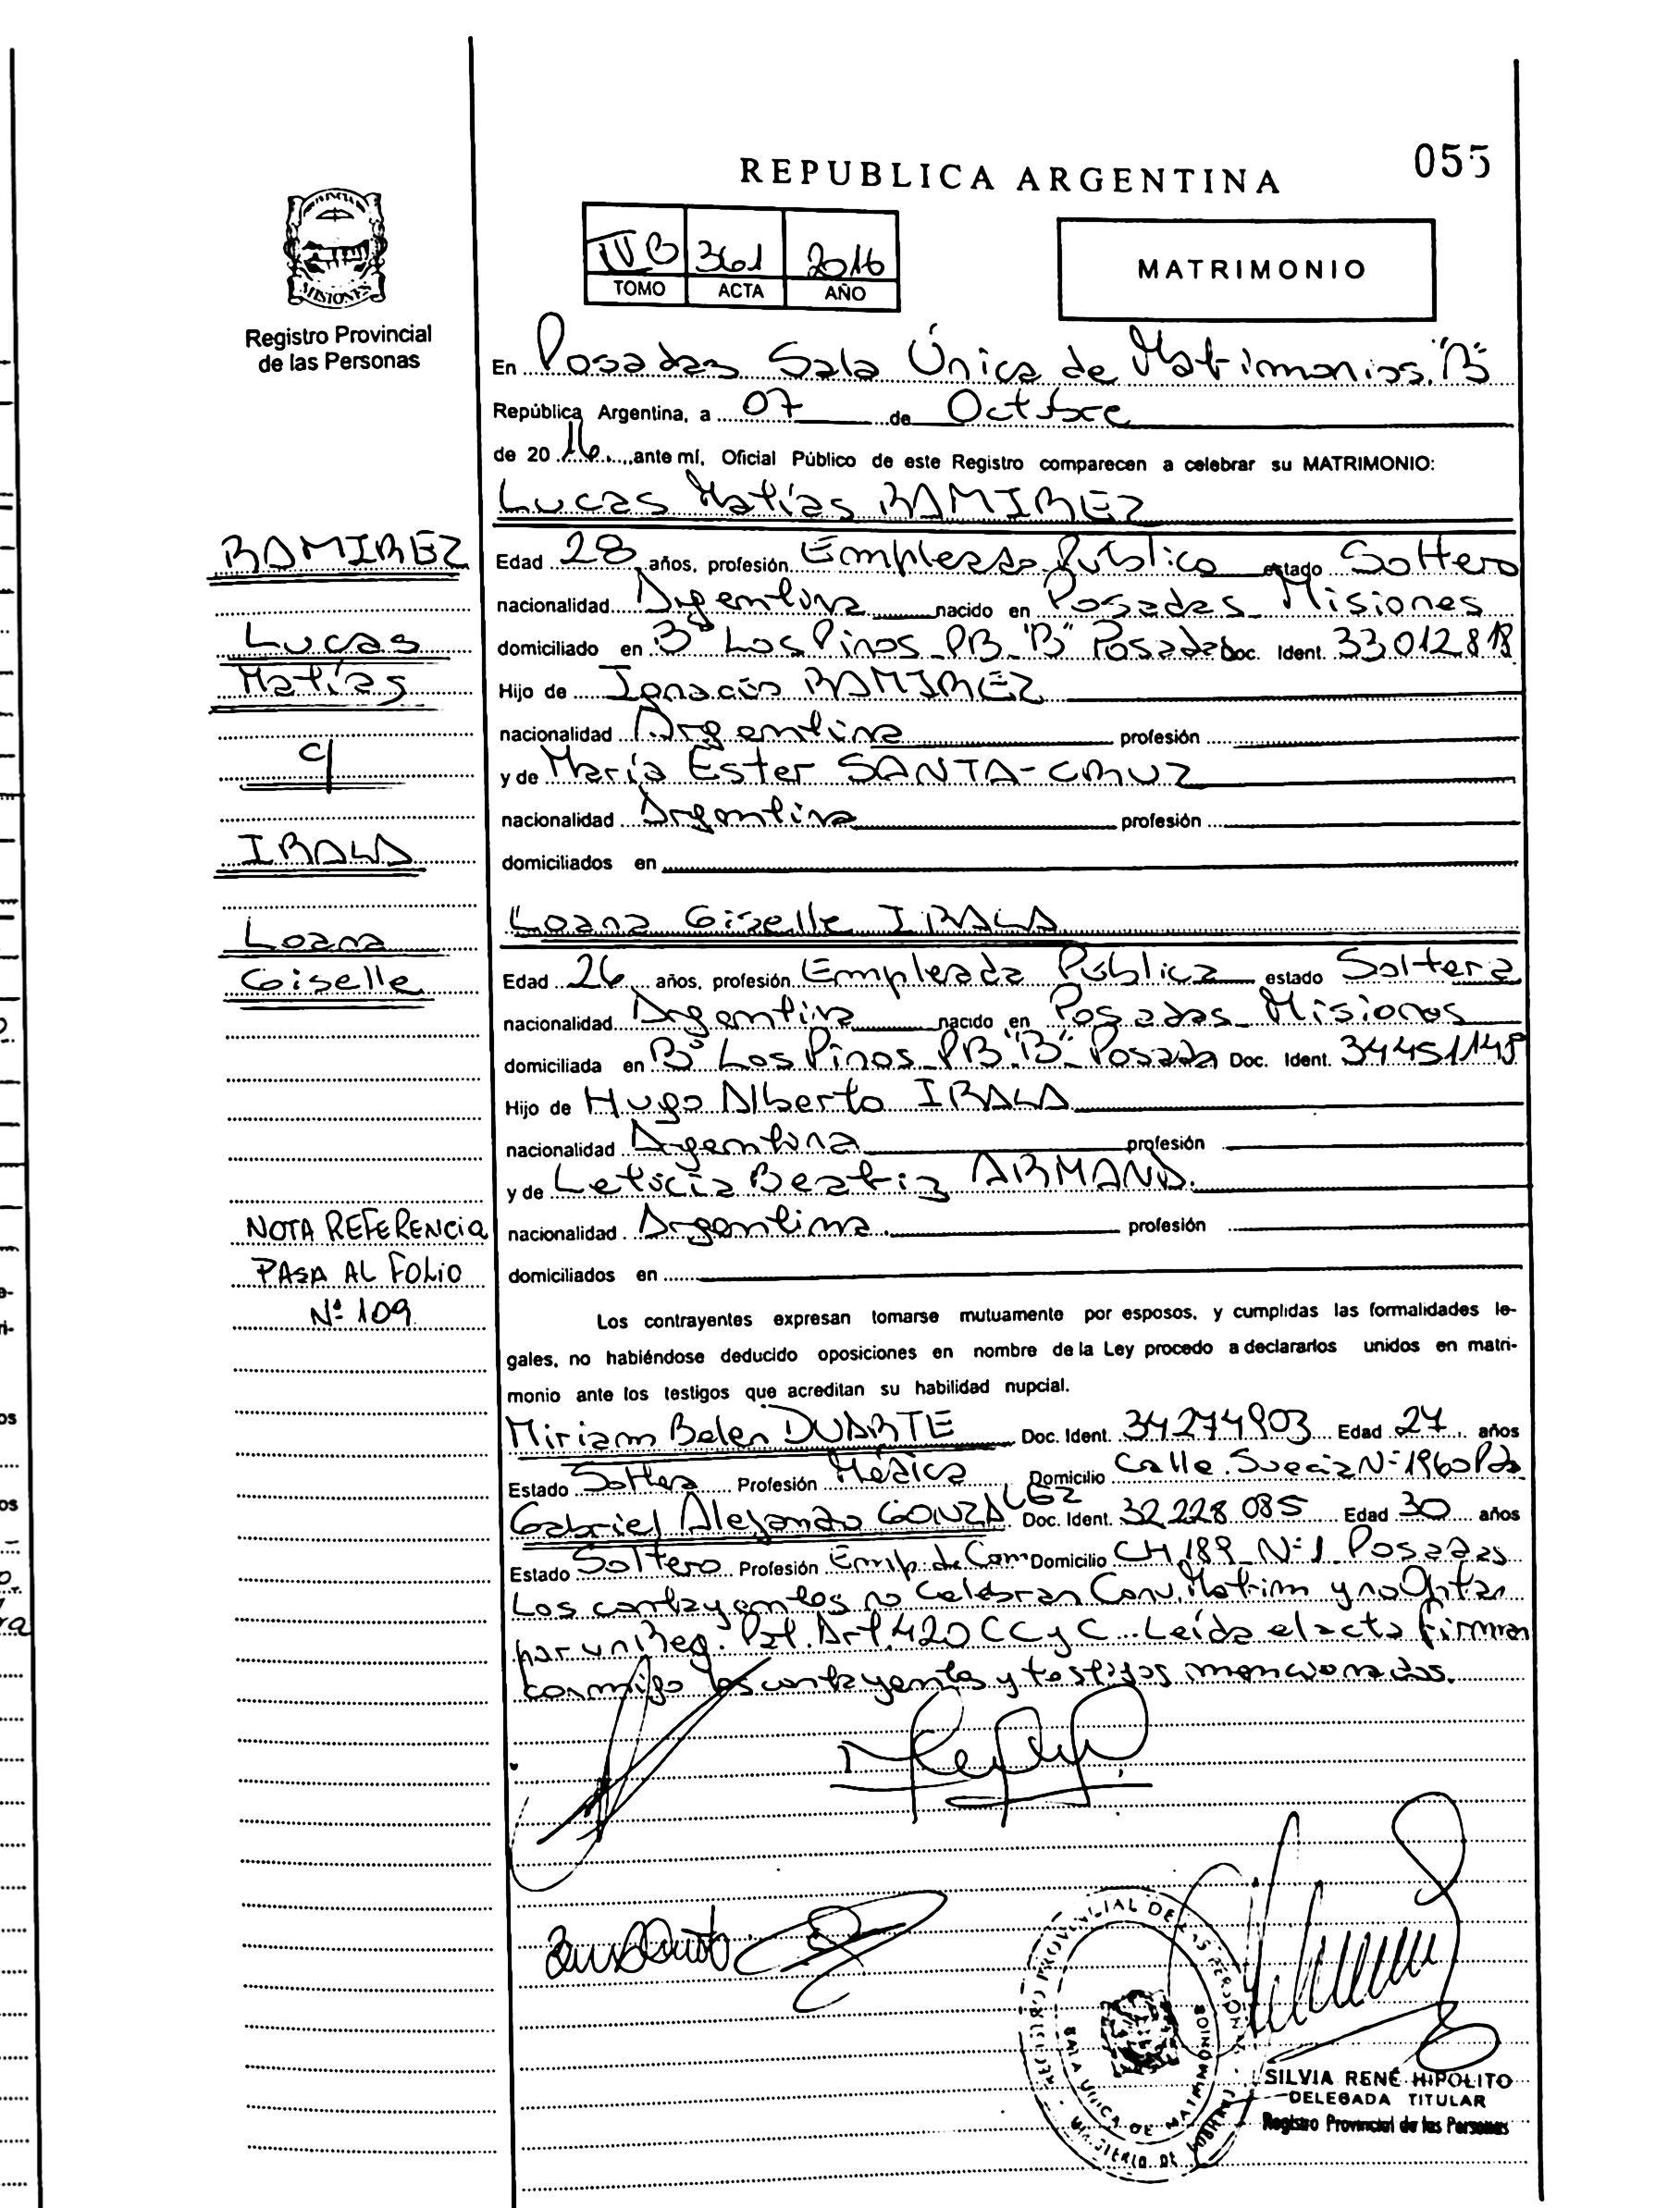 055
REPUBLICA ARGENTINA
PROVINCIA DE
MISIONES
Registro Provincial
de las Personas
IV B 361 2016
TOMO ACTA AÑO
MATRIMONIO
En Posadas Sala Única de Matrimonios "B"
República Argentina, a 07 de Octubre
de 20 16 ante mí, Oficial Público de este Registro comparecen a celebrar su MATRIMONIO:
Lucas Matías RAMIREZ
RAMIREZ
Lucas
Matías
c/
IRALA
Loana
Giselle
Edad 28 años, profesión Empleado Público estado Soltero
nacionalidad Argentina nacido en Posadas Misiones
domiciliado en B° Los Pinos PB "B" Posadas Doc. Ident. 33012818
Hijo de Ignacio RAMIREZ
nacionalidad Argentina profesión
y de María Ester SANTA-CRUZ
nacionalidad Argentina profesión
domiciliados en
Loana Giselle IRALA
Edad 26 años, profesión Empleada Pública estado Soltera
nacionalidad Argentina nacido en Posadas Misiones
domiciliada en B° Los Pinos PB "B" Posada Doc. Ident.
Hijo de Hugo Alberto IRALA
nacionalidad Argentina profesión
y de Leticia Beatriz ARMAND.
nacionalidad Argentina. profesión
domiciliados en
NOTA REFERENCIA
PASA AL FOLIO
Nº 109
Los contrayentes expresan tomarse mutuamente por esposos, y cumplidas las formalidades le-
gales, no habiéndose deducido oposiciones en nombre de la Ley procedo a declararlos unidos en matri-
monio ante los testigos que acreditan su habilidad nupcial.
Miriam Belen DUARTE Doc. Ident. 34274903 Edad 27 años
Estado Soltera Profesión Médica Domicilio Calle Suecia Nº 1960 Pdas
Gabriel Alejandro GONZALEZ Doc. Ident. 32.228.085 Edad 30 años
Estado Soltero Profesión Emp. de Com Domicilio CH 189 Nº 1 Posadas
Los contrayentes no celebran Conv. Matrim y no Optan
por un Reg. Pat. Art. 420 CC y C. Leída el acta firman
conmigo los contrayentes y testigos mencionados.
REGISTRO PROVINCIAL DE LAS PERSONAS
SALA UNICA DE MATRIMONIOS
MINISTERIO DE GOBIERNO
SILVIA RENÉ HIPOLITO
DELEGADA TITULAR
Registro Provincial de las Personas